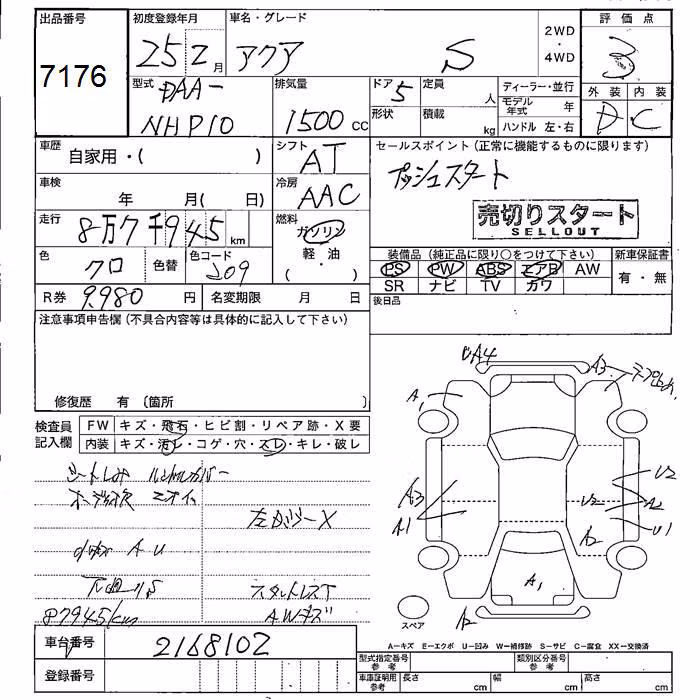 出品番号
7176
初度登録年月
25年2月
車名・グレード
アクア S
2WD
・
4WD
評価点
3
外装 内装
D C
型式
DAA-
NHP10
排気量
1500 cc
ドア 5
形状
定員
人
積載
kg
ディーラー・並行
モデル年式 年
ハンドル 左・右
車歴
自家用・( )
シフト
AT
セールスポイント(正常に機能するものに限ります)
プッシュスタート
売切りスタート
SELLOUT
車検
年 月( 日)
冷房
AAC
走行
8万7千945 km
燃料
ガソリン
・
軽・油
( )
色
クロ
色替
色コード
209
装備品(純正品に限り○をつけて下さい)
PS PW ABS エアB AW
SR ナビ TV カワ
新車保証書
有・無
R券 9,980 円
名変期限 月 日
後日品
注意事項申告欄(不具合内容等は具体的に記入して下さい)
修復歴 有(箇所 )
検査員
記入欄
FW キズ・飛石・ヒビ割・リペア跡・X要
内装 キズ・汚レ・コゲ・穴・スレ・キレ・破レ
シートしみ
左ガラスX
A U
下廻りS
スタットレスT
87945km
AWキズ
UA4
A3
A1
A3
A1
U2
U2
A2
U1
A2
A1
A2
スペア
A=キズ E=エクボ U=凹み W=補修跡 S=サビ C=腐食 XX=交換済
車台番号
2168102
登録番号
型式指定番号
参考
類別区分番号
参考
車庫証明用
参考
長さ cm
幅 cm
高さ cm